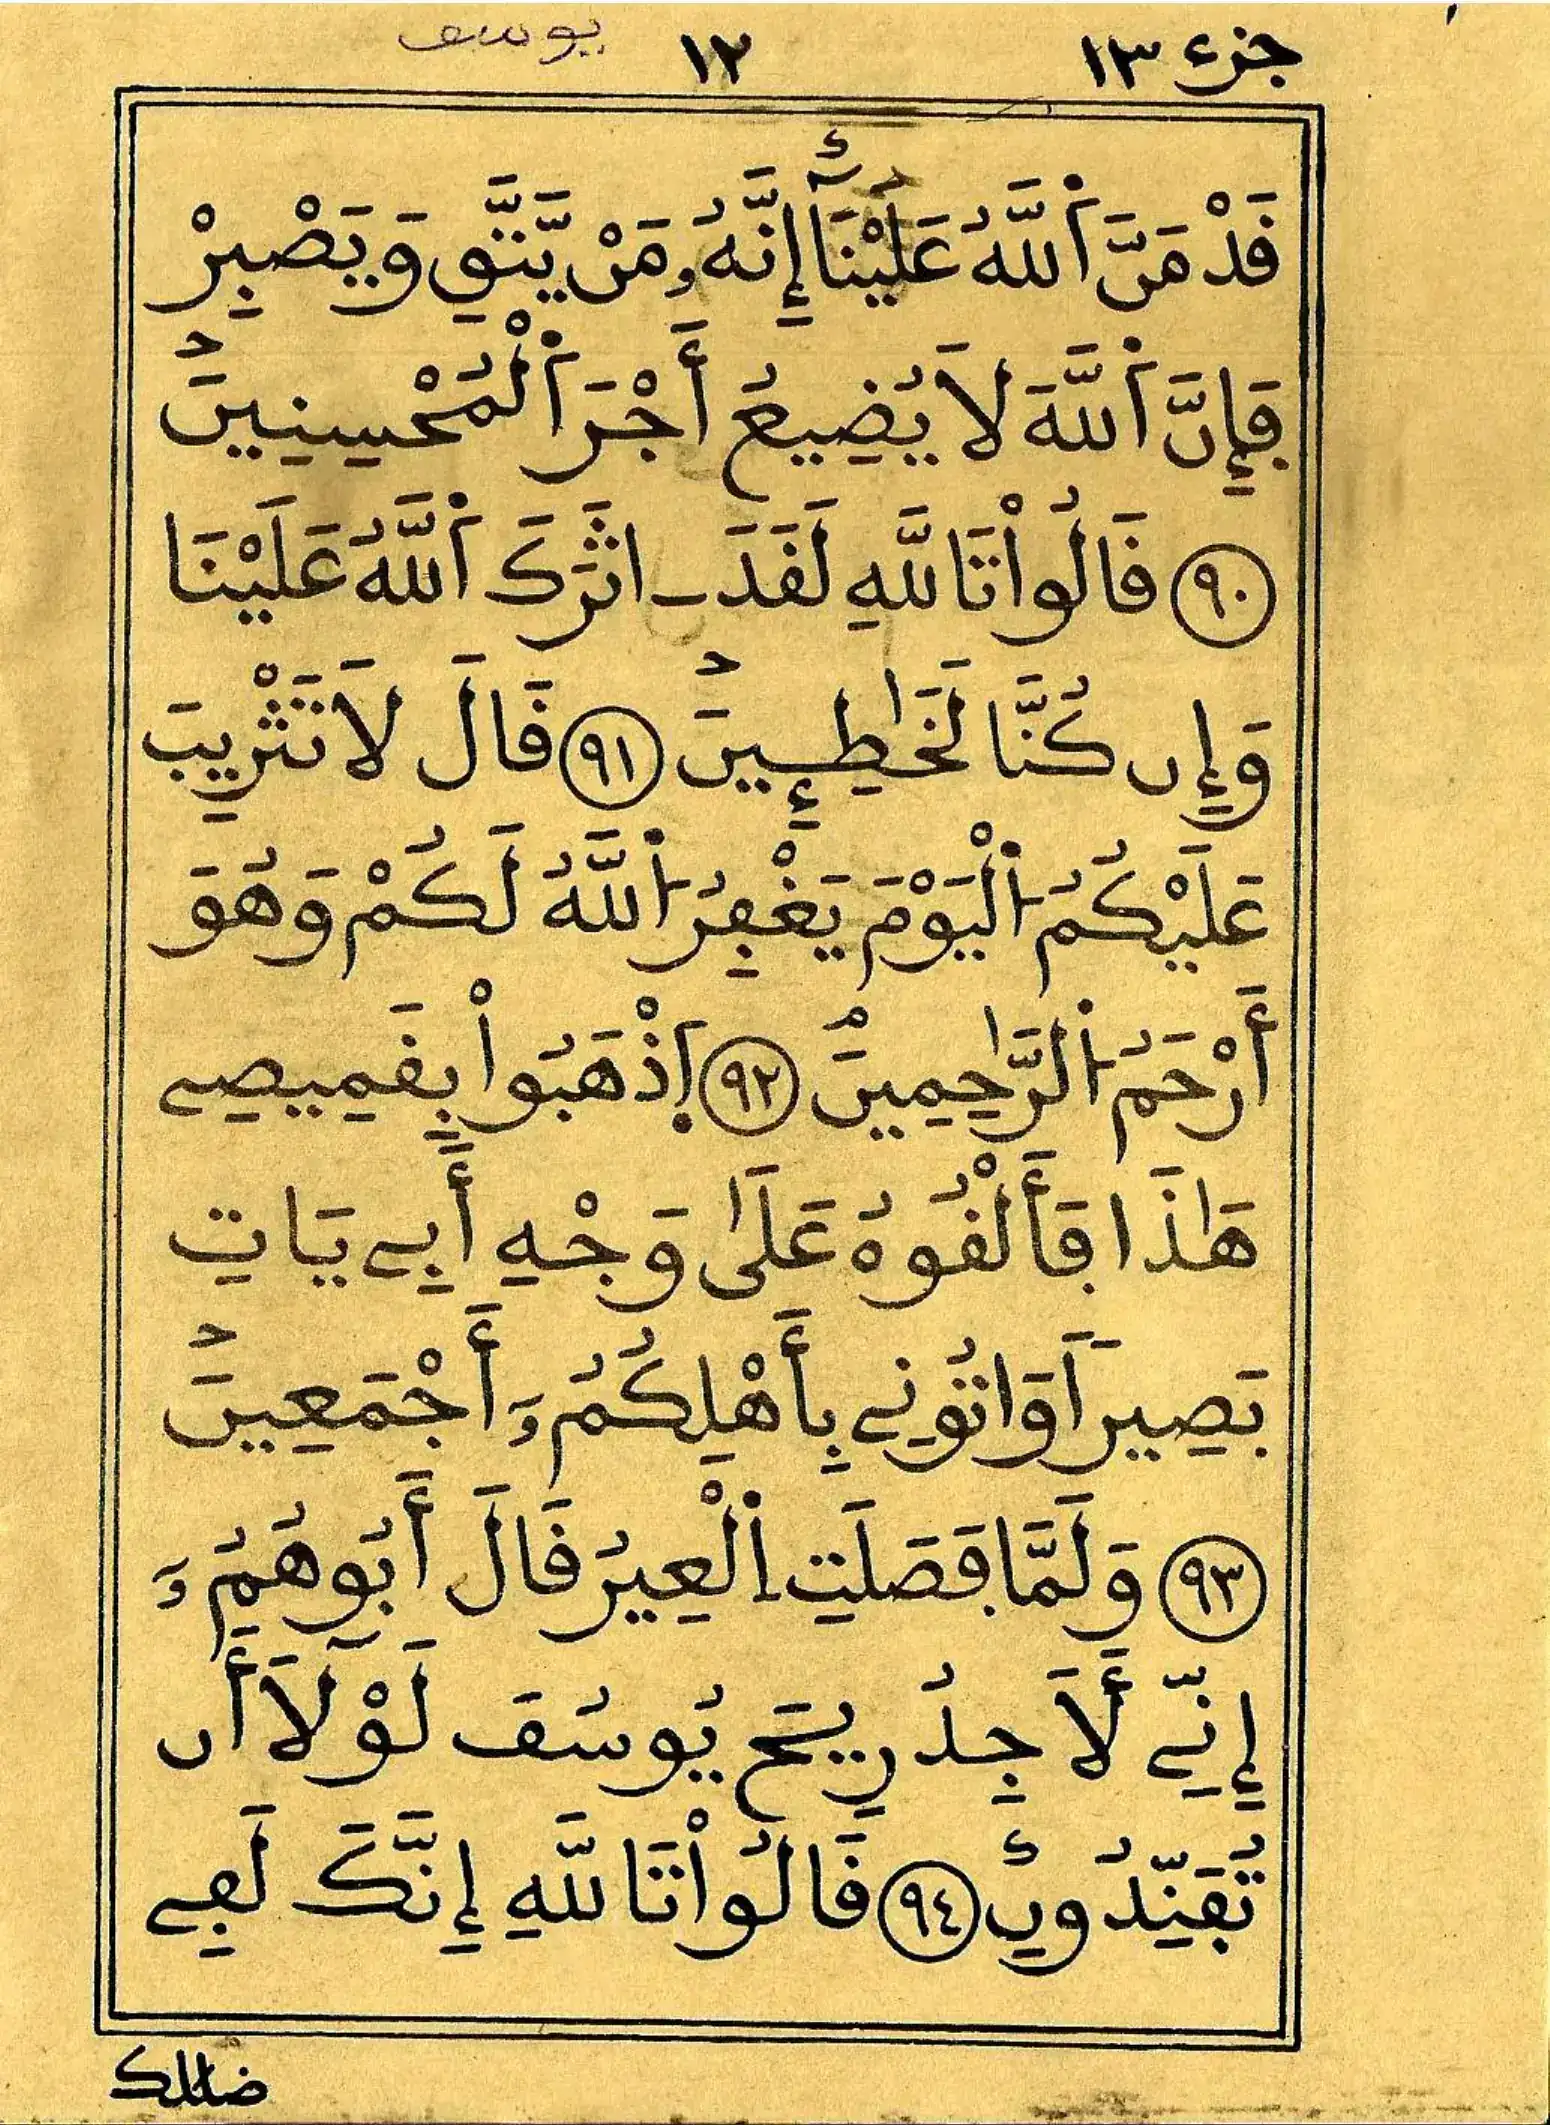 جزء ١٣ ١٢ يوسف
قَدْ مَنَّ اَ۬للَّهُ عَلَيْنَآ إِنَّهُۥ مَنْ يَّتَّقِ وَيَصْبِرْ
فَإِنَّ اَ۬للَّهَ لَا يُضِيعُ أَجْرَ اَ۬لْمُحْسِنِينَ
٩٠ قَالُواْ تَاللَّهِ لَقَدَ ـاثَرَكَ اَ۬للَّهُ عَلَيْنَا
وَإِن كُنَّا لَخَٰطِـِٕينَ ٩١ قَالَ لَا تَثْرِيبَ
عَلَيْكُمُ اُ۬لْيَوْمَ يَغْفِرُ اُ۬للَّهُ لَكُمْ وَهُوَ
أَرْحَمُ اُ۬لرَّٰحِمِينَ ٩٢ اِ۪ذْهَبُواْ بِقَمِيصِے
هَٰذَا فَأَلْقُوهُ عَلَىٰ وَجْهِ أَبِے يَاتِ
بَصِيراً وَاتُونِے بِأَهْلِكُمُۥٓ أَجْمَعِينَ
٩٣ وَلَمَّا فَصَلَتِ اِ۬لْعِيرُ قَالَ أَبُوهُمُۥٓ
إِنِّے لَأَجِدُ رِيحَ يُوسُفَ لَوْلَآ أَن
تُفَنِّدُونِ ٩٤ قَالُواْ تَاللَّهِ إِنَّكَ لَفِے
ضللك